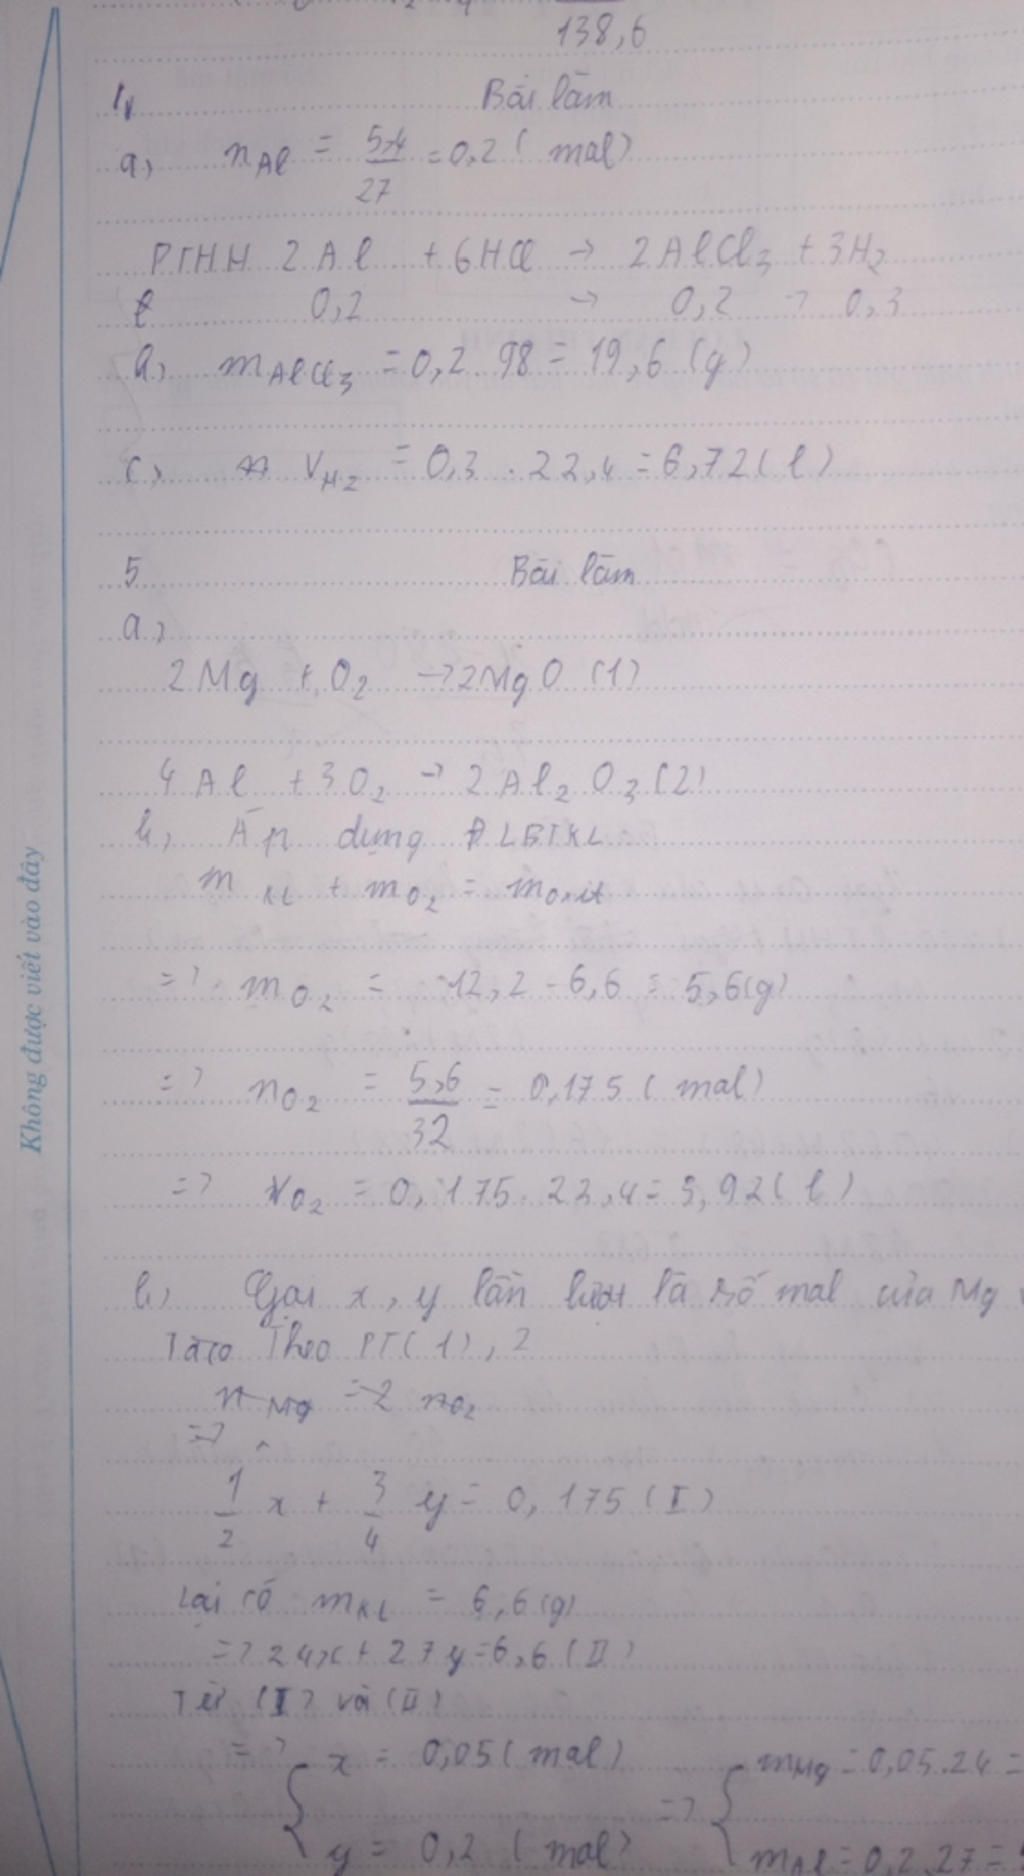 138,6
1, Bài làm
a, nAl = 5,4/27 = 0,2 ( mol)
PTHH 2Al + 6HCl → 2AlCl3 + 3H2
t 0,2 → 0,2 → 0,3
b, mAlCl3 = 0,2 . 98 = 19,6 (g)
c, VH2 = 0,3 . 22,4 = 6,72 ( l )
5 Bài làm
a,
2Mg + O2 → 2MgO (1)
4Al + 3O2 → 2Al2O3 (2)
b, Áp dụng ĐLBTKL
mKL + mO2 = moxit
=> mO2 = 12,2 - 6,6 = 5,6(g)
=> nO2 = 5,6/32 = 0,175 ( mol)
=> VO2 = 0,175 . 22,4 = 3,92 ( l )
b, Gọi x, y lần lượt là số mol của Mg
Theo PT(1), 2
nMg = 2 nO2
=>
1/2 x + 3/4 y = 0,175 (I)
Lại có mKL = 6,6(g)
=> 24x + 27y = 6,6 (II)
Từ (I) và (II)
=> { x = 0,05 ( mol) => { mMg = 0,05.24 =
y = 0,2 ( mol) mAl = 0,2.27 =
Không được viết vào đây